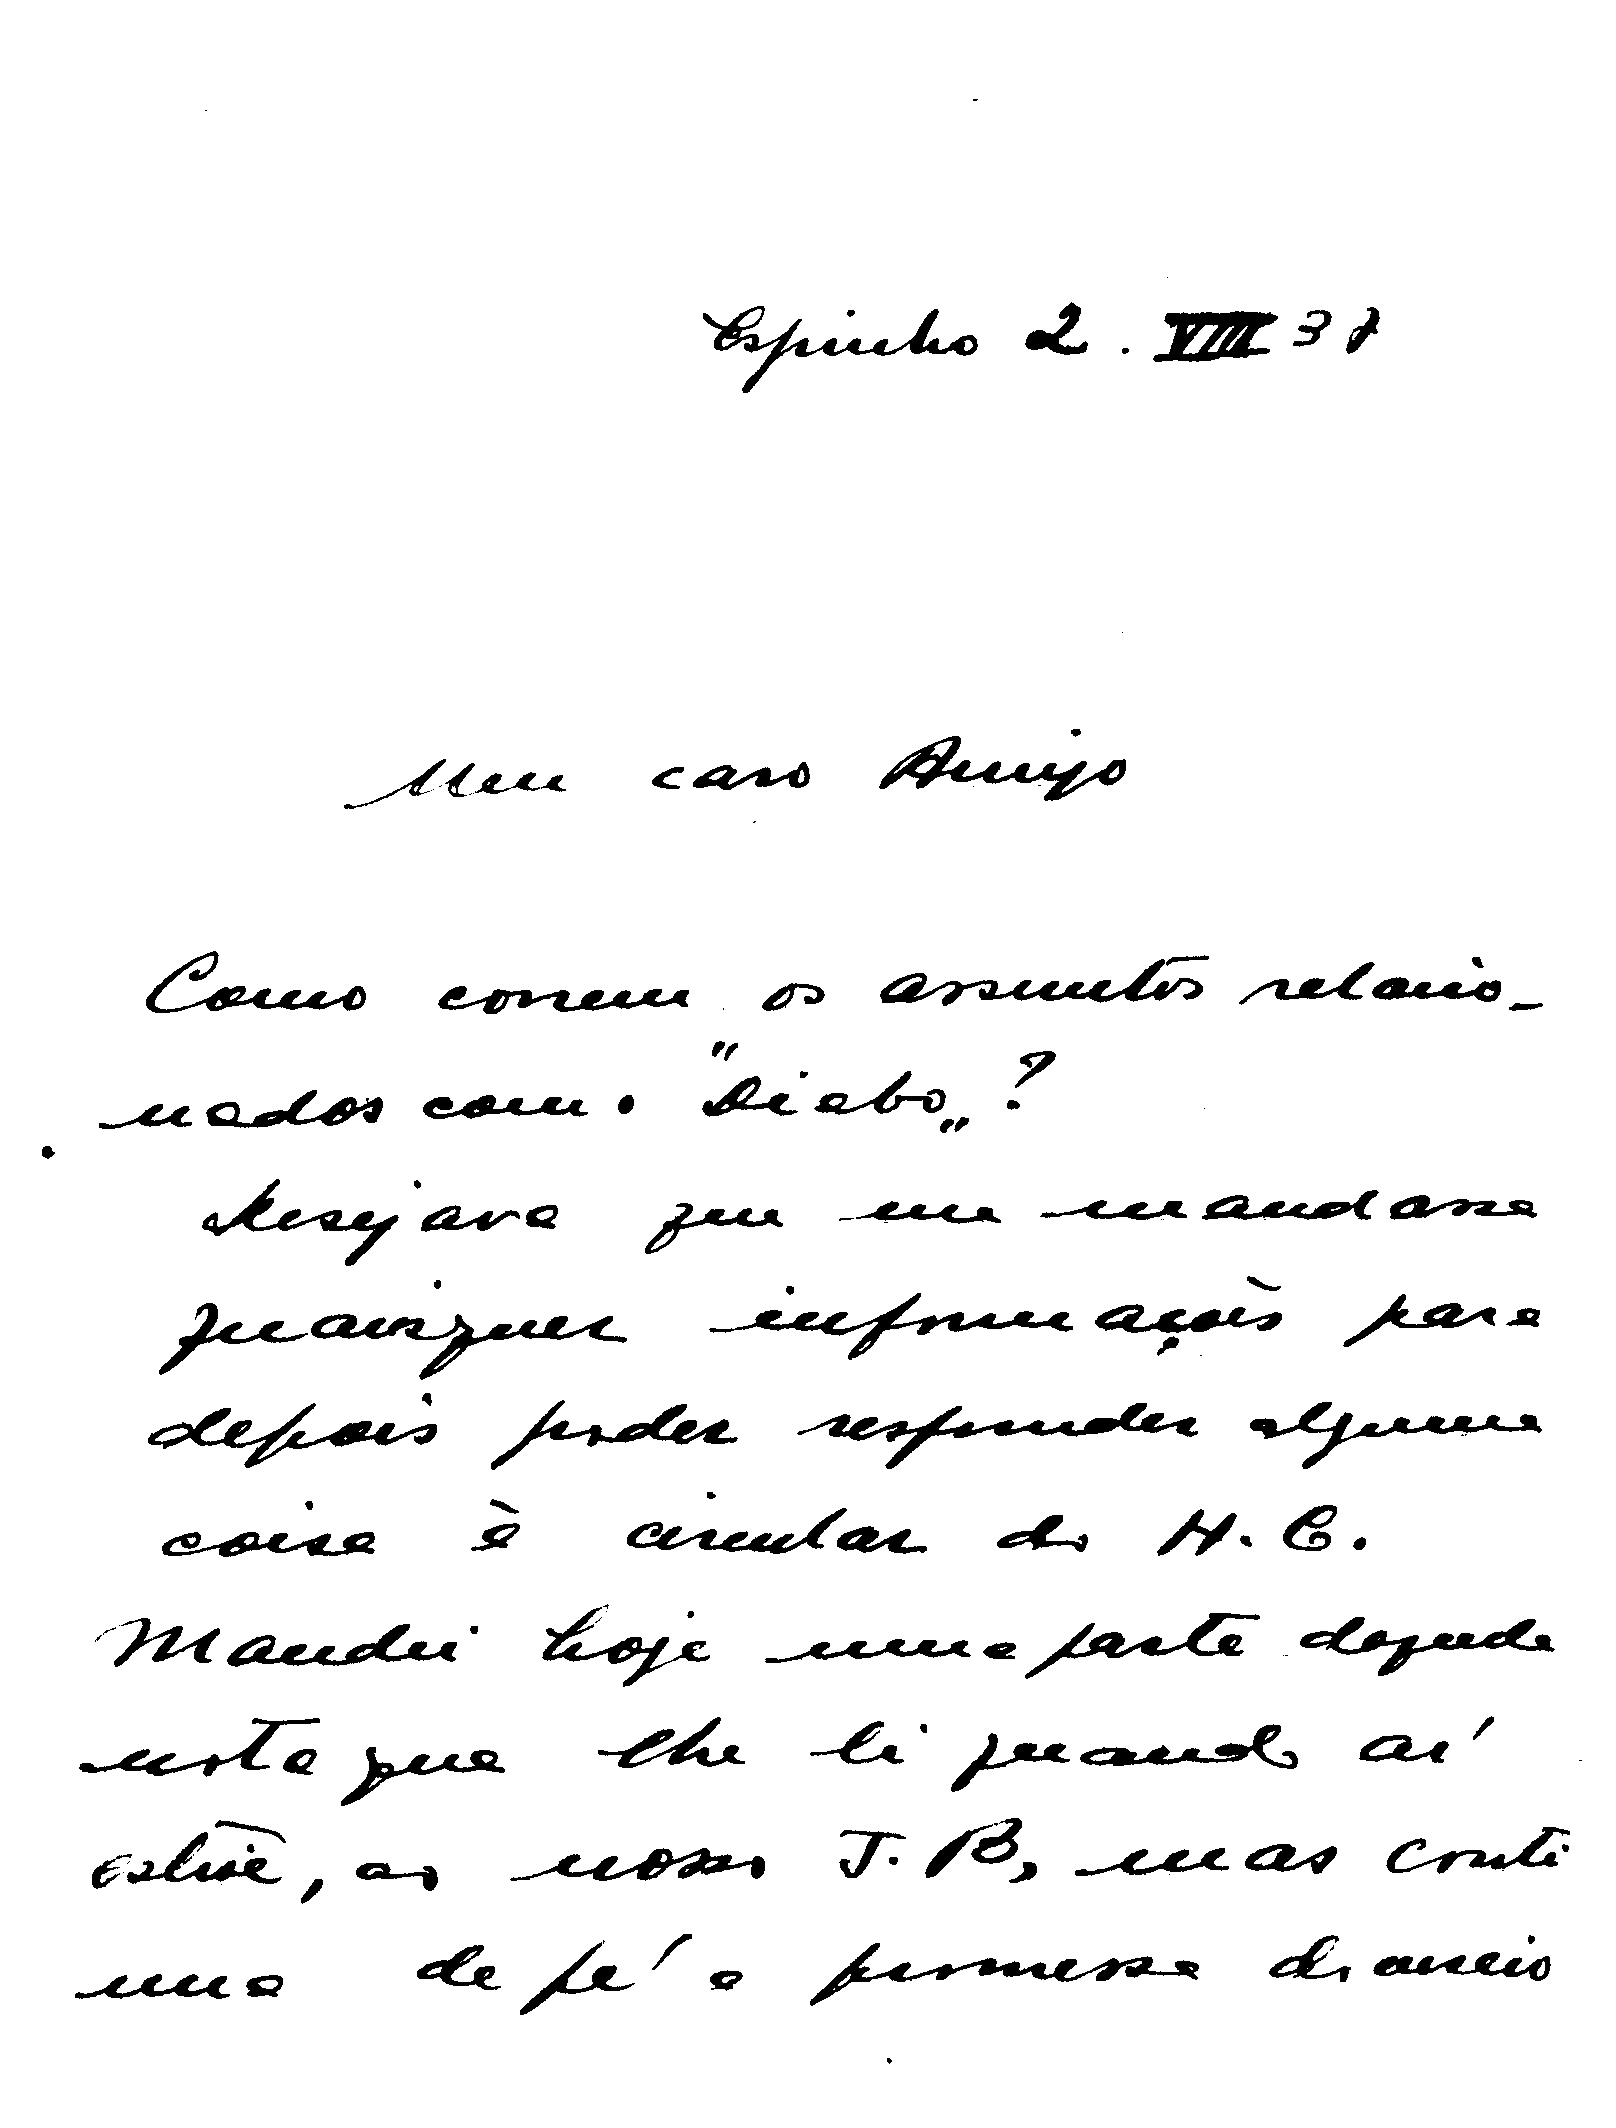 Espinho 2. VIII 37
Meu caro Amigo
Como correm os assuntos relacio-
nados com o "Diabo„?
Desejava que me mandasse
quaisquer informações para
depois poder responder alguma
coisa à circular do H. C.
Mandei hoje uma parte daquela
nota que lhe li quando aí
estive, ao nosso J. B, mas conti
nua de pé a promessa do